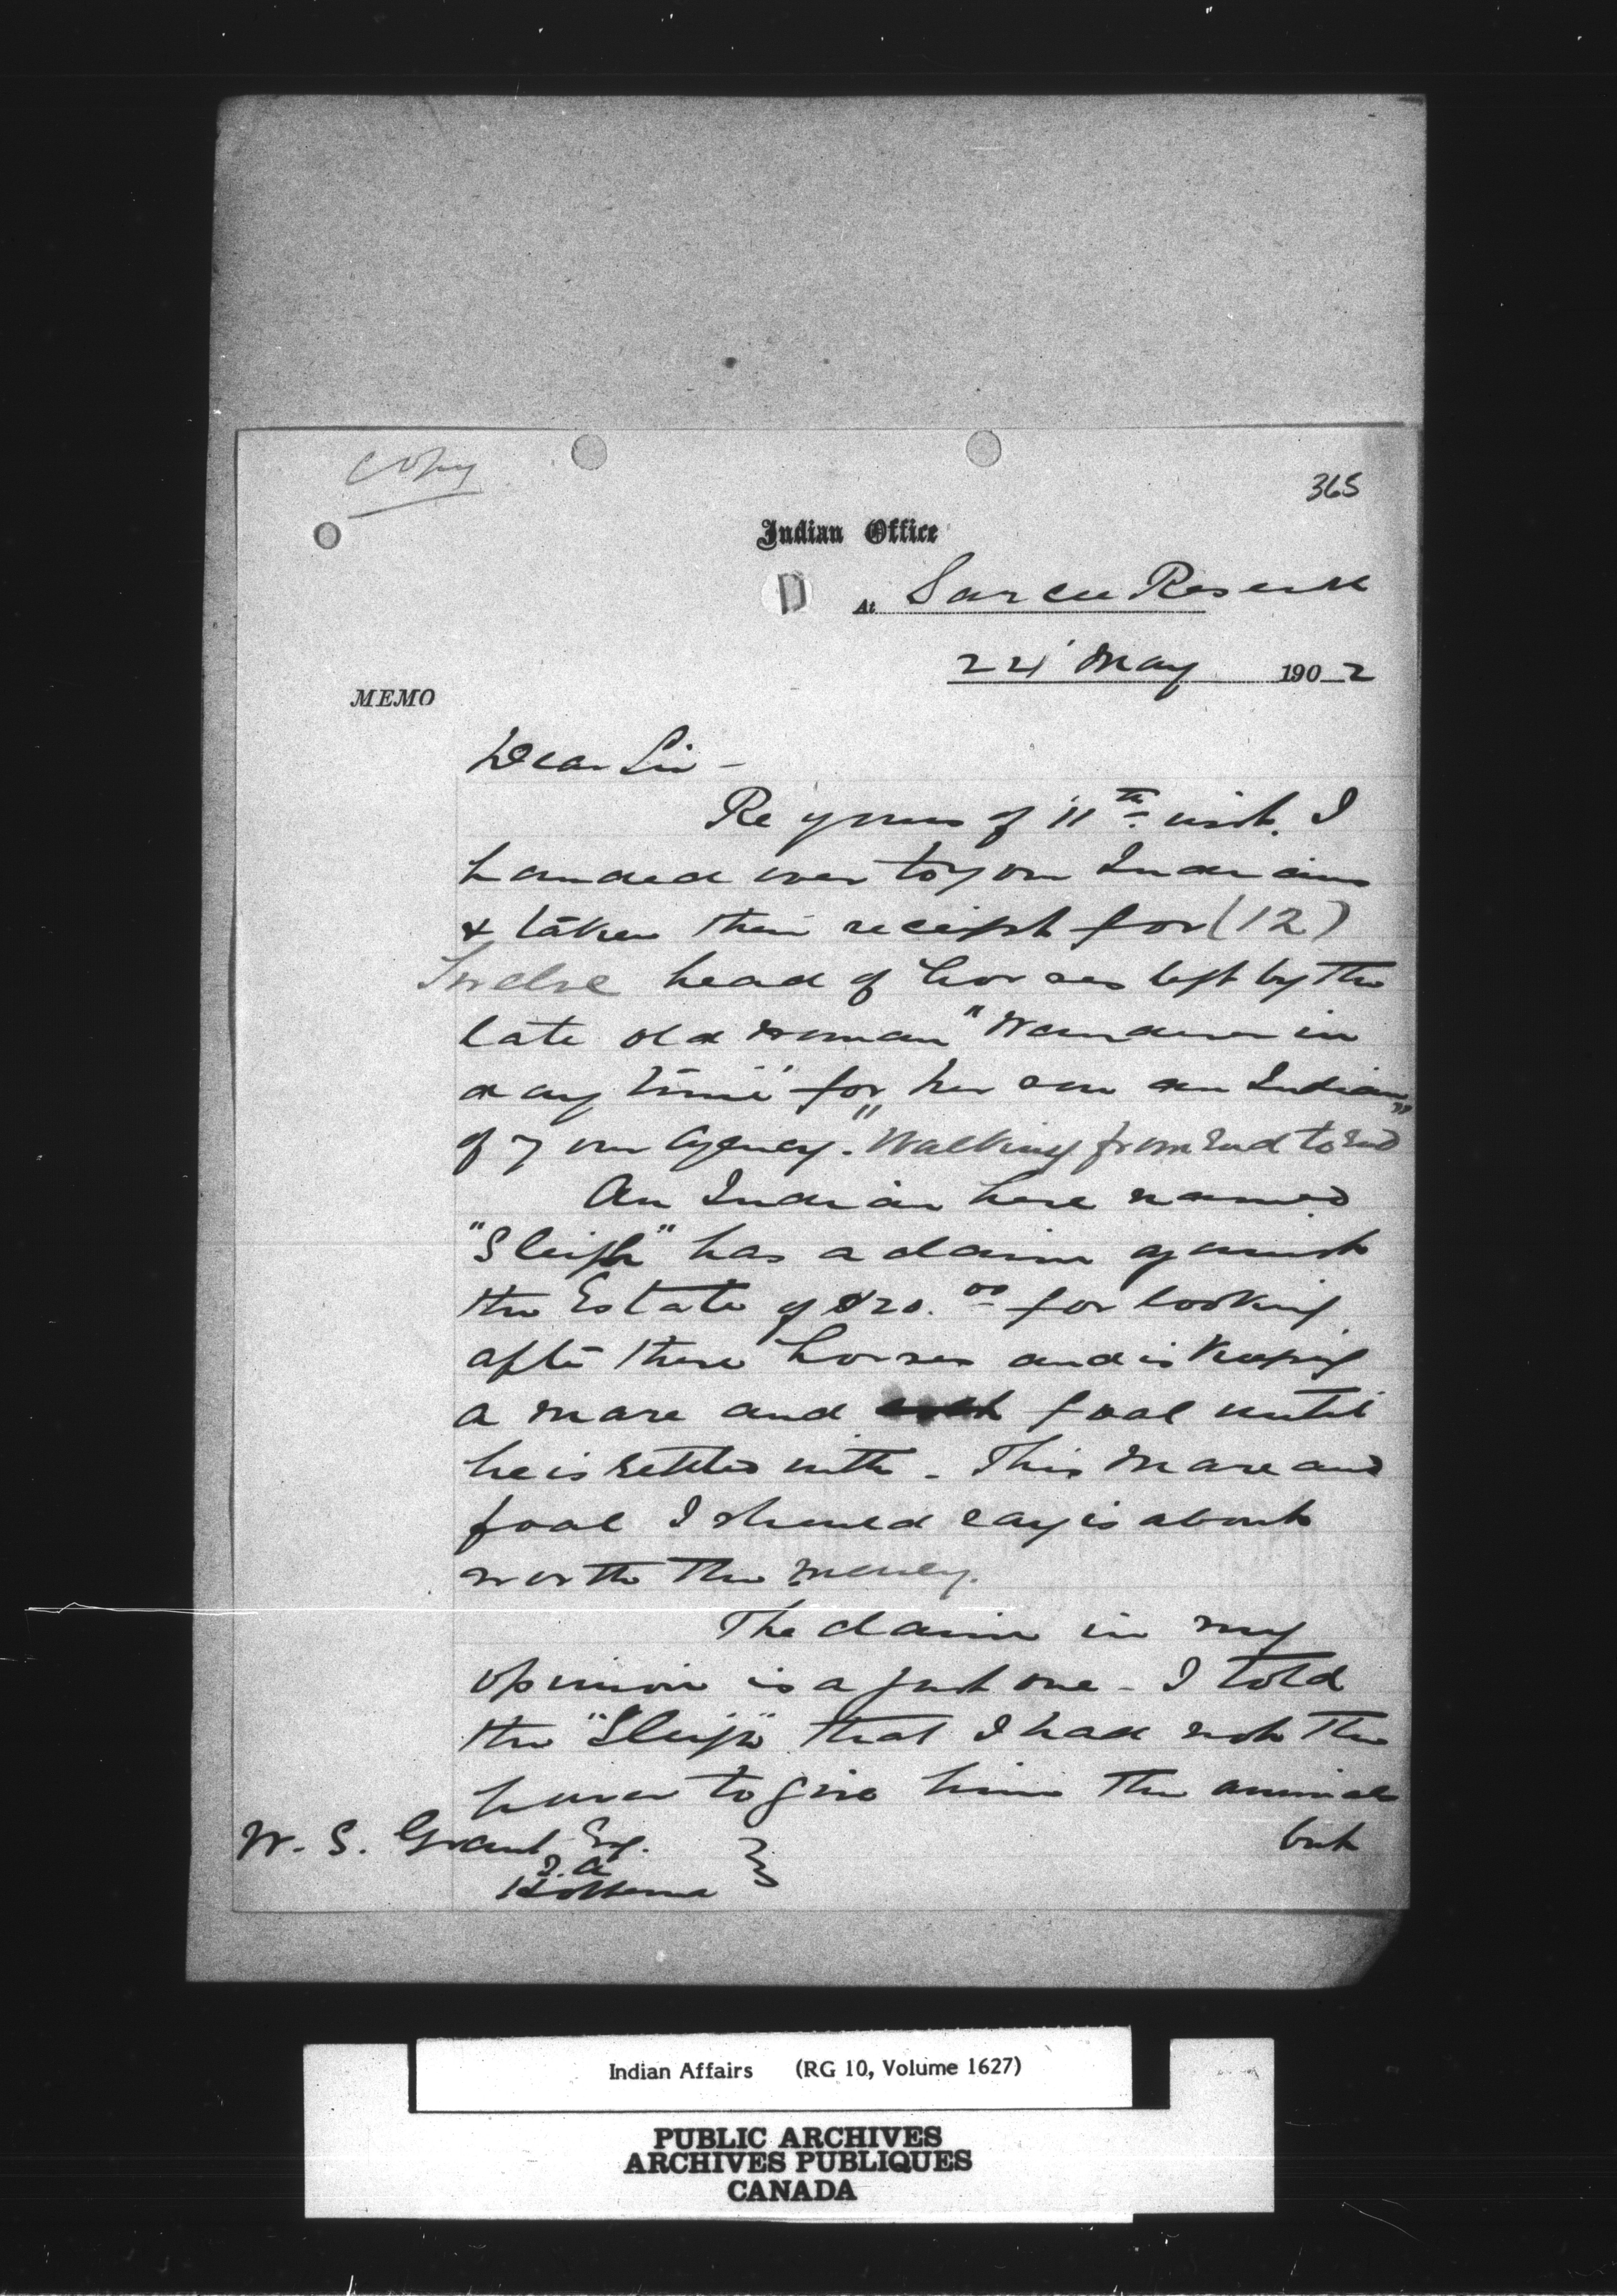 Copy
365
Indian Office
D
At Sarcee Reserve
22' May 1902
MEMO
Dear Sir -
Re yours of 11th inst. I
handed over to your Indians
& taken their receipt for (12)
Twelve head of horses left by the
late old woman "Wanderer in
day time" for her son an Indian
of your Agency. "Walking from End to End"
An Indian here named
"Sleigh" has a claim against
the Estate of $20.00 for looking
after these horses and is keeping
a mare and foal until
he is settled with. This mare and
foal I should say is about
worth the money.
The claim in my
opinion is a just one - I told
the "Sleigh" that I had not the
power to give him the animals
but
W. S. Grant Esq.
I. A
Hobbema
Indian Affairs (RG 10, Volume 1627)
PUBLIC ARCHIVES
ARCHIVES PUBLIQUES
CANADA